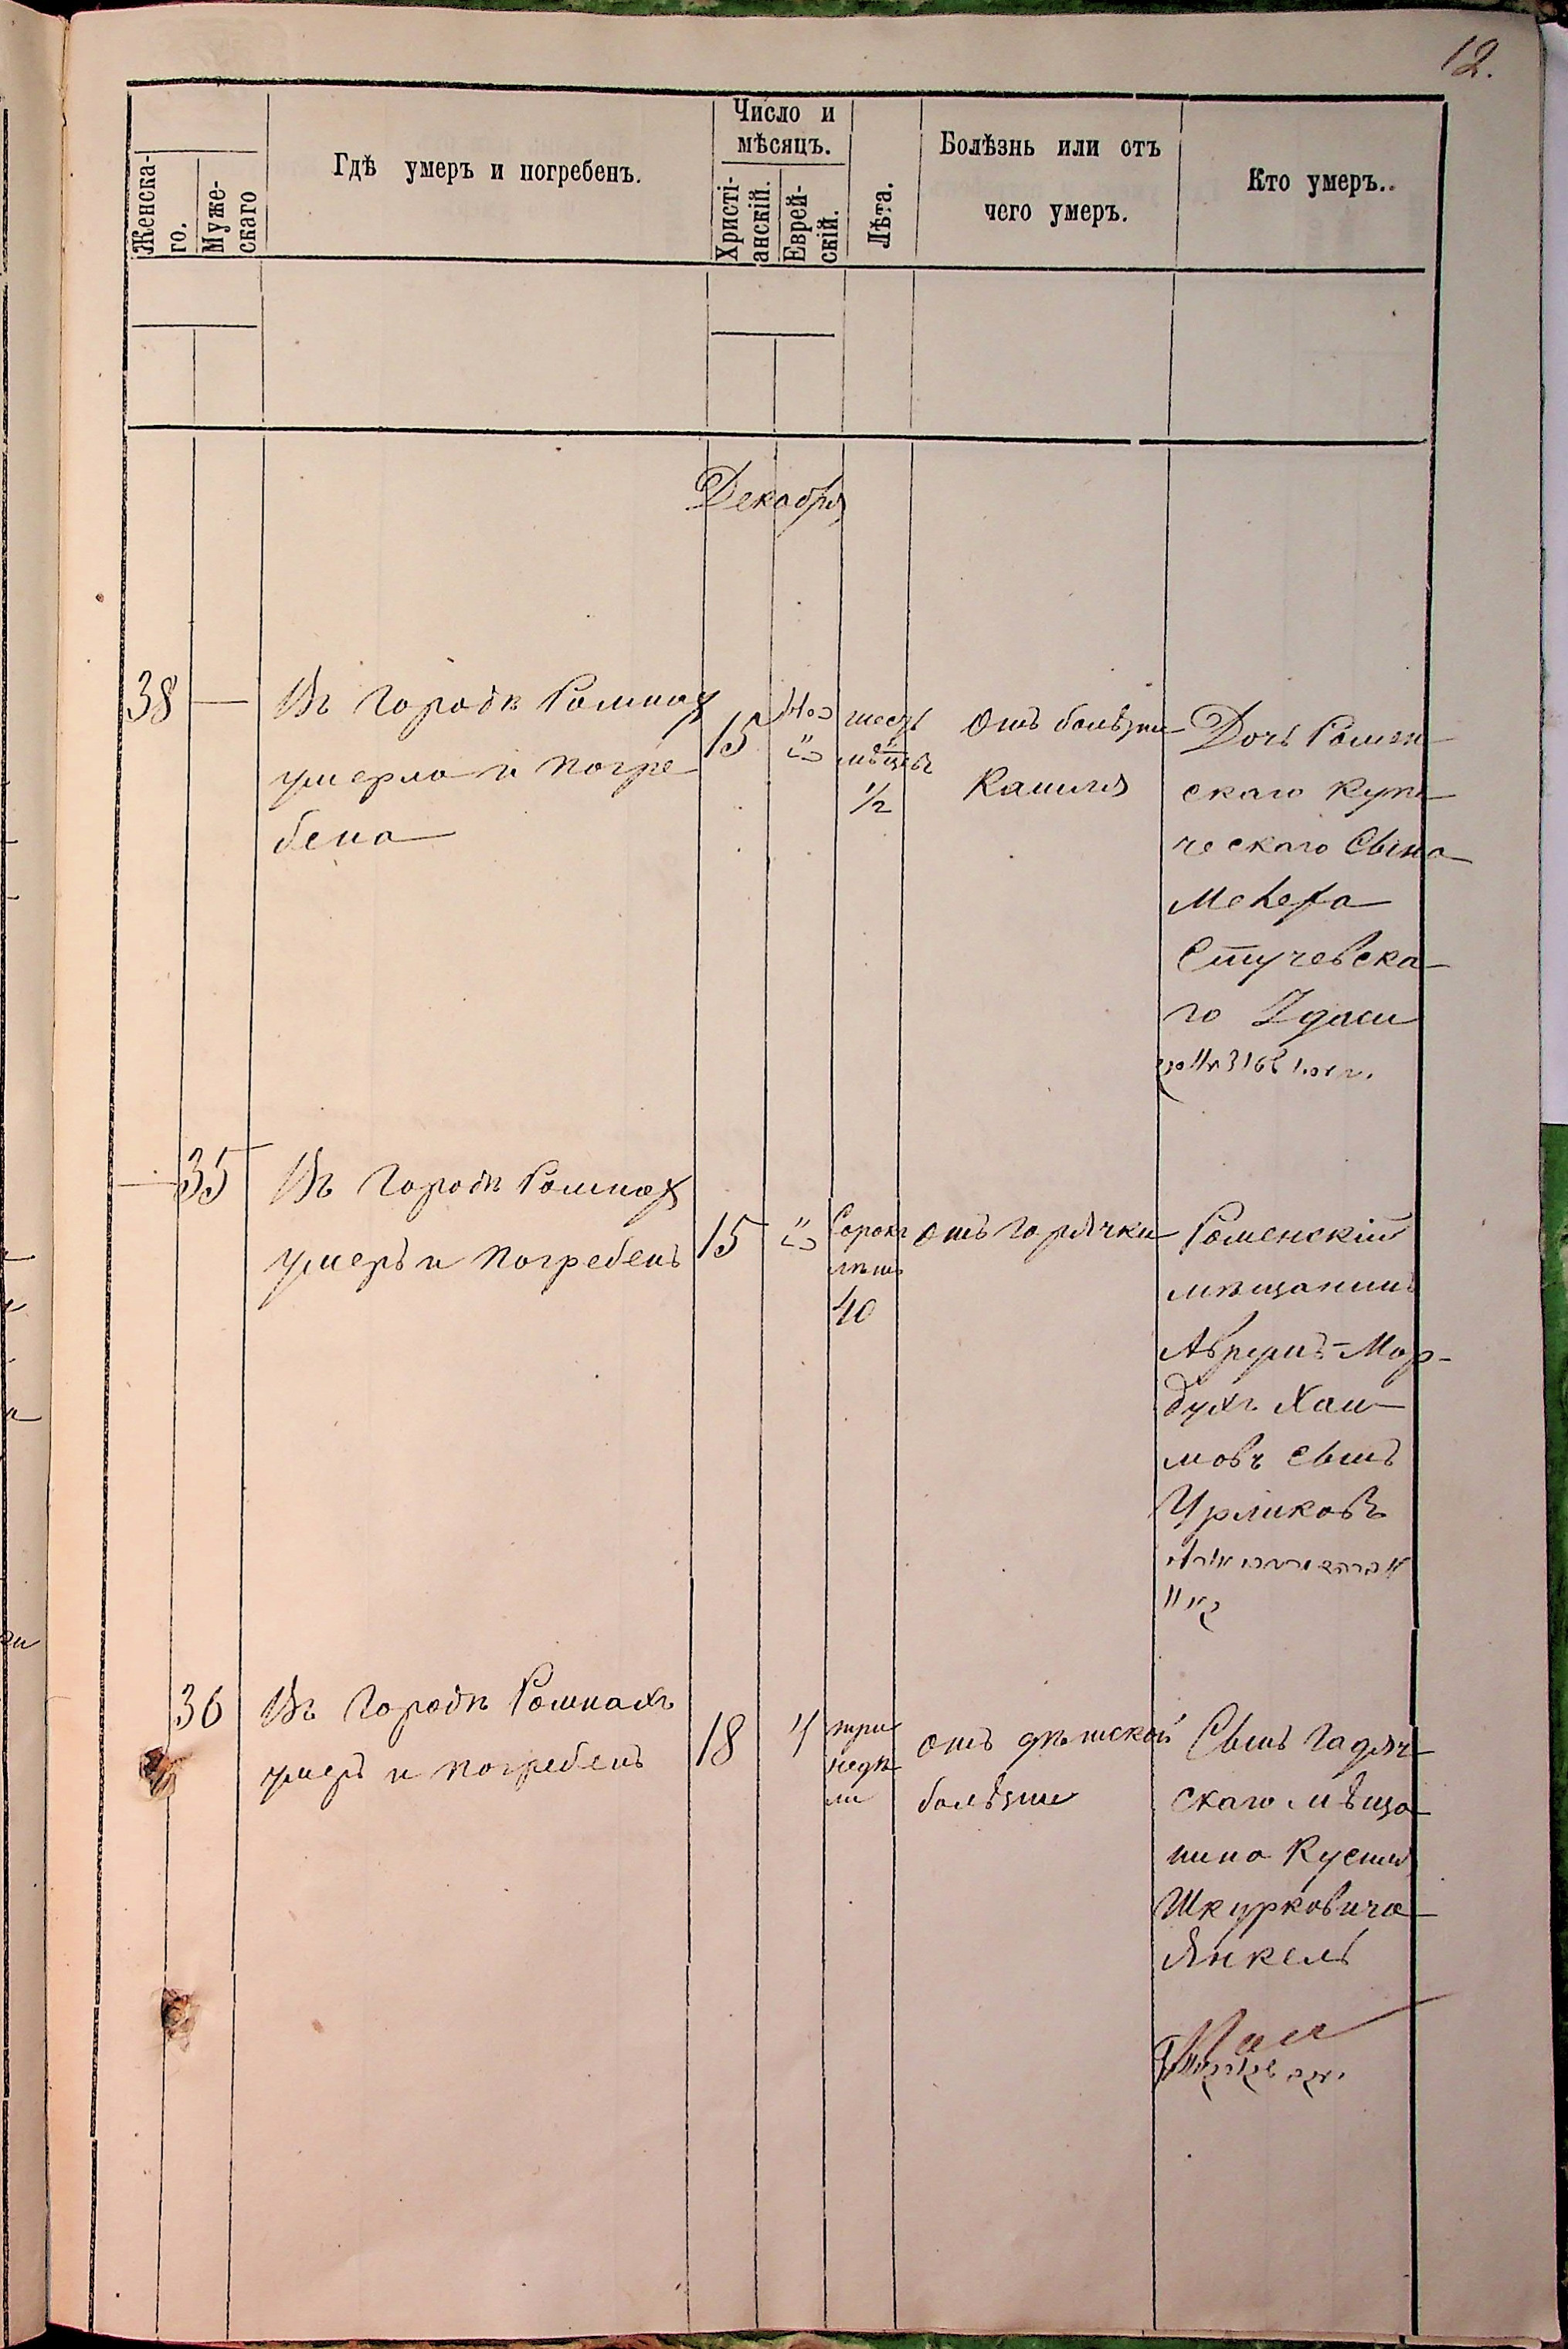 12.
Женска-
го.
Муже-
скаго
Гдѣ умеръ и погребенъ.
Число и
мѣсяцъ.
Христі-
анскій.
Еврей-
скій.
Лѣта.
Болѣзнь или отъ
чего умеръ.
Кто умеръ..
Декабря
38 —
Въ городѣ Ромнах
умерла и погре
бена
15
шесть
мѣцевъ
1/2
Отъ болѣзни
кашля
Дочь Ромен
скаго купе
ческаго сына
Стучевска
го
— 35
Въ городѣ Ромнах
умеръ и погребенъ
15
Сорокъ
лѣтъ
40
отъ горячки
Роменскій
мѣщанинъ
Аврумъ-Мор-
духъ Хаи
мовъ сынъ
Урликовъ
36
Въ городѣ Ромнахъ
умеръ и погребенъ
18
три
недѣ
ли
отъ дѣтской
болѣзни
Сынъ Гадяч
скаго мѣща
нина Кусиля
Шкурковича
Янкель